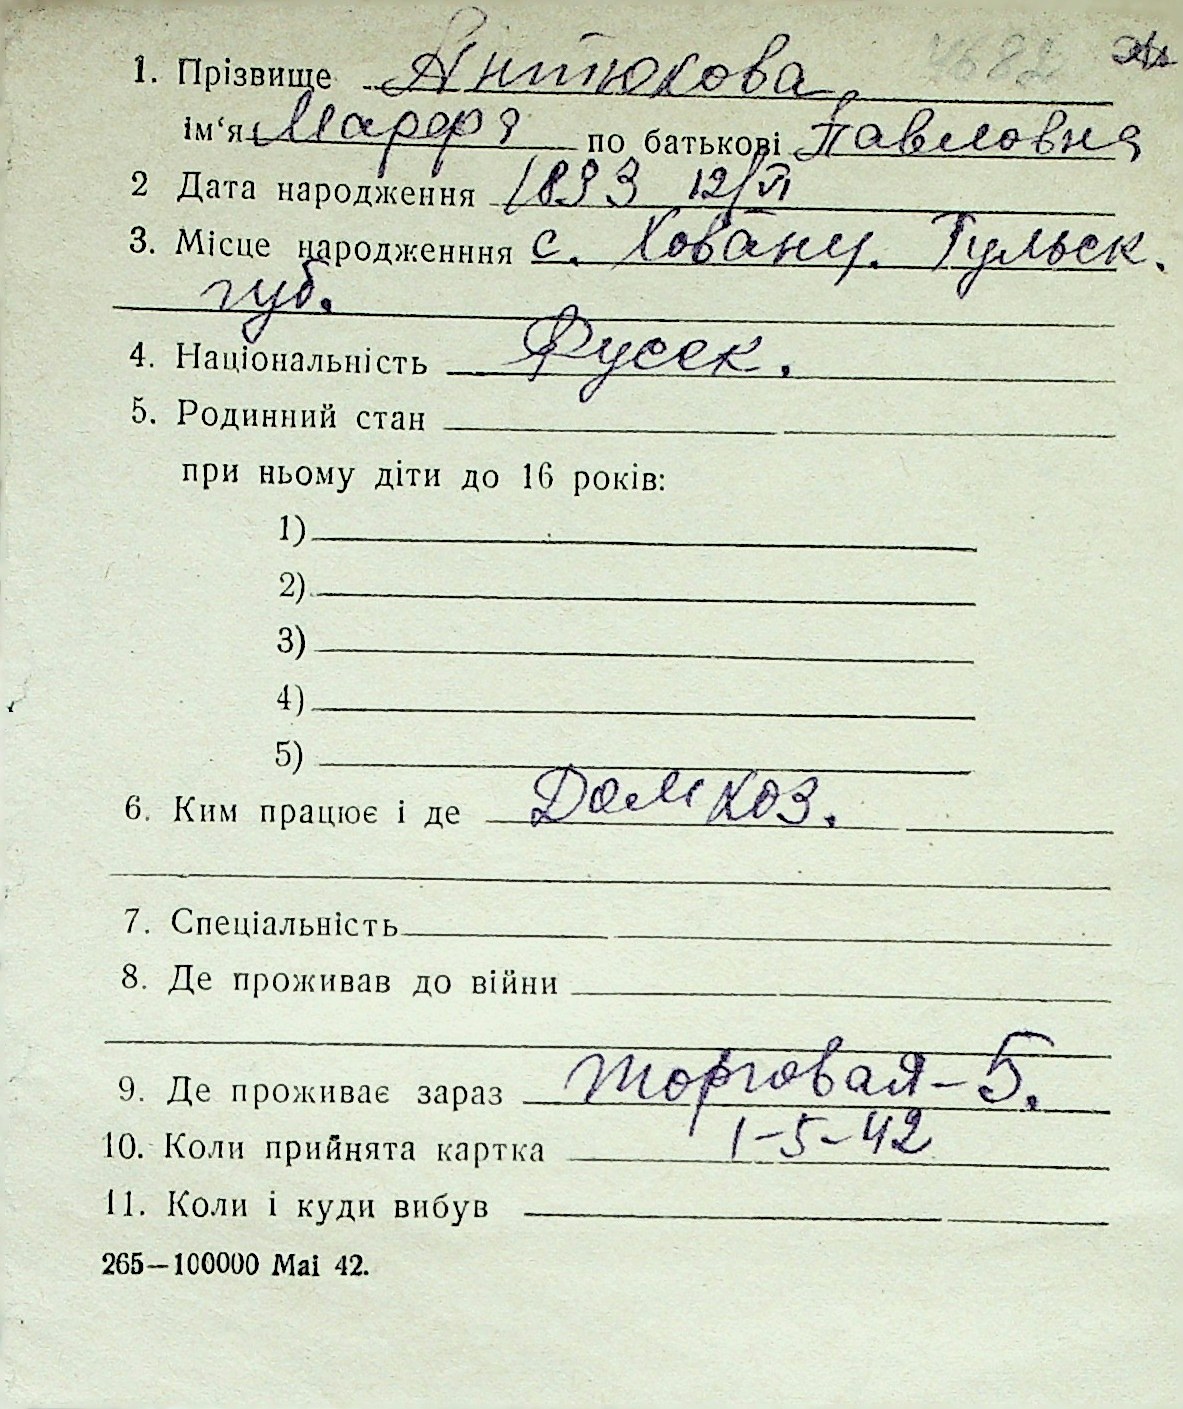 1. Прізвище Антюхова
ім‘я Марфа по батькові Павловна
2 Дата народження 1893 12/VI
3. Місце народженння с. Хованц. Тульск.
губ.
4. Національність Русск.
5. Родинний стан
при ньому діти до 16 років:
1)
2)
3)
4)
5)
6. Ким працює і де Домхоз.
7. Спеціальність
8. Де проживав до війни
9. Де проживає зараз Торговая-5.
10. Коли прийнята картка 1-5-42
11. Коли і куди вибув
265—100000 Mai 42.